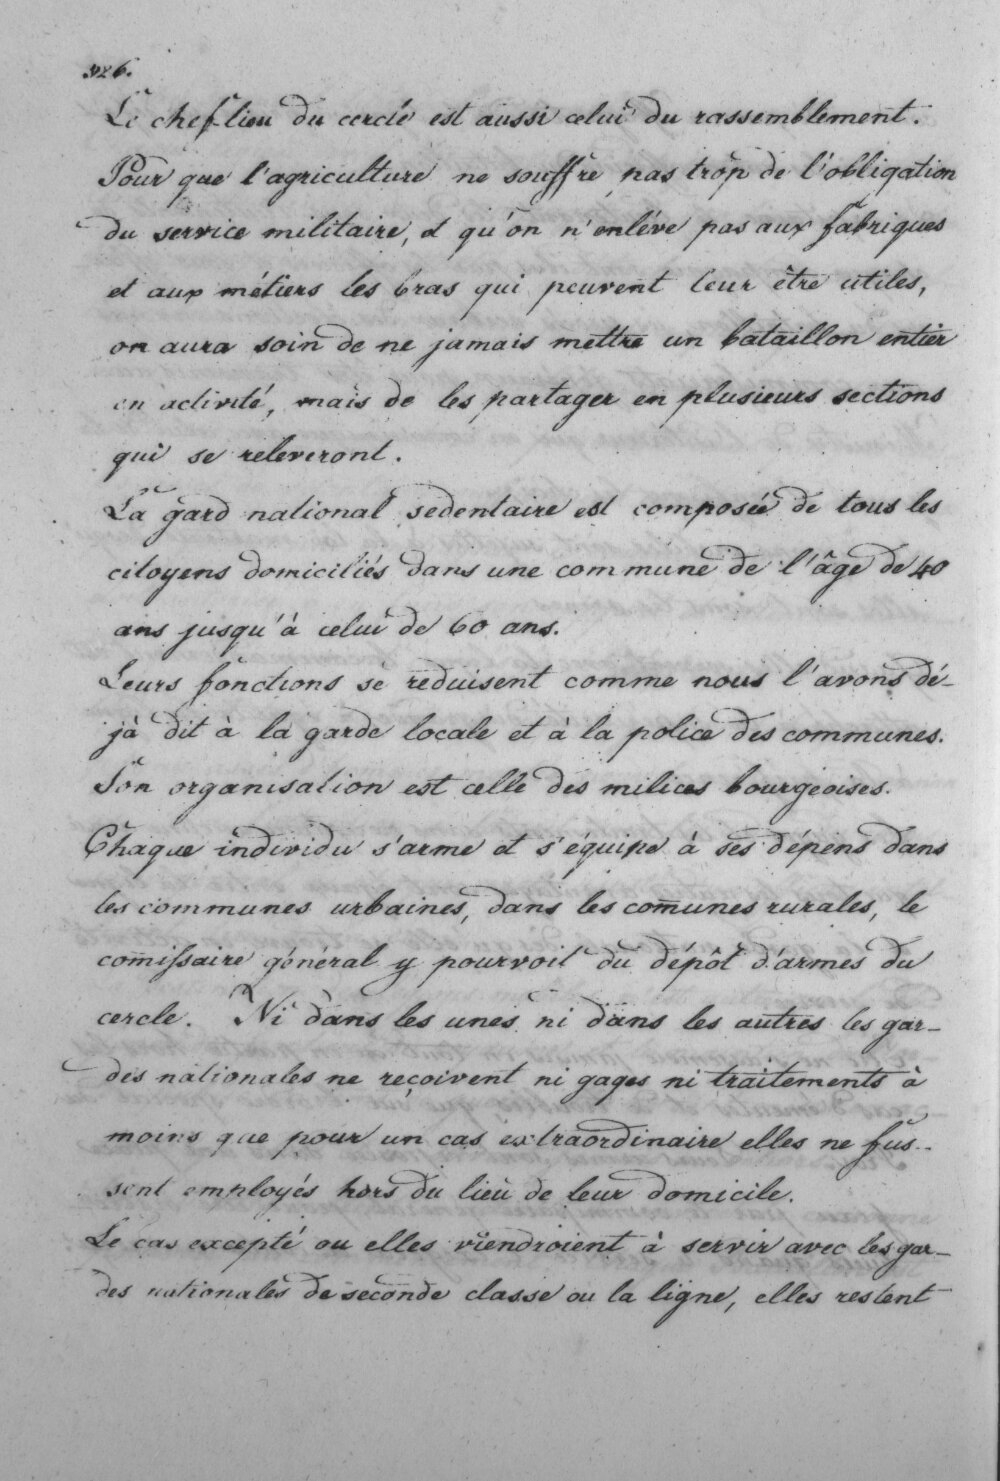 326.
Le chef-lieu du cercle est aussi celui du rassemblement.
Pour que l'agriculture ne souffre pas trop de l'obligation
du service militaire, et qu'on n'enlève pas aux fabriques
et aux métiers les bras qui peuvent leur être utiles,
on aura soin de ne jamais mettre un bataillon entier
en activité, mais de les partager en plusieurs sections
qui se releveront.
La gard national sedentaire est composée de tous les
citoyens domiciliés dans une commune de l'âge de 40
ans jusqu'à celui de 60 ans.
Leurs fonctions se reduisent comme nous l'avons dé-
jà dit à la garde locale et à la police des communes.
Son organisation est celle des milices bourgeoises.
Chaque individu s'arme et s'équipe à ses dépens dans
les communes urbaines, dans les com̄unes rurales, le
com̄issaire général y pourvoit du dépôt d'armes du
cercle. Ni dans les unes ni dans les autres les gar-
des nationales ne reçoivent ni gages ni traitements à
moins que pour un cas extraordinaire elles ne fus-
sent employés hors du lieu de leur domicile.
Le cas excepté ou elles viendroient à servir avec les gar-
des nationales de seconde classe ou la ligne, elles restent